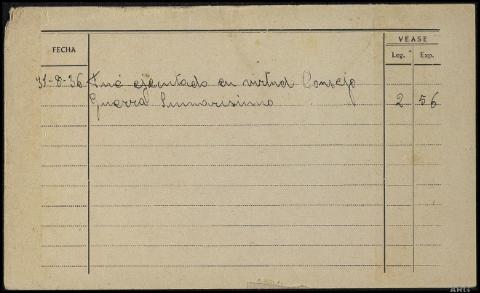 VEASE
FECHA
Leg. Exp.
31-8-36 Fué ejecutado en virtud Consejo
Guerra Sumarisimo 2 56